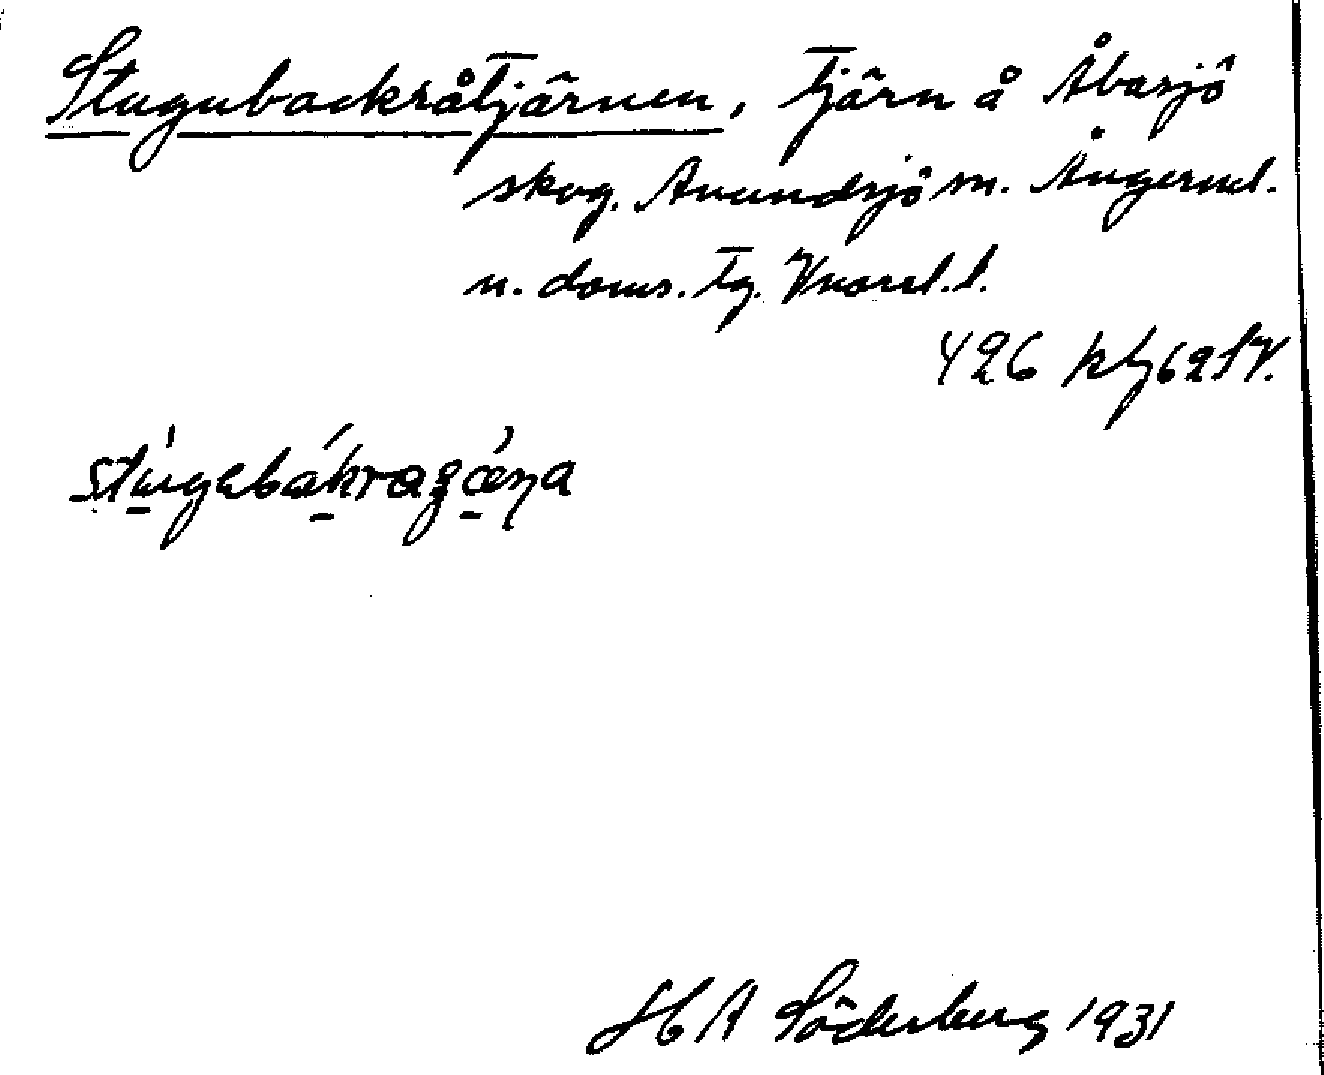 Stugubackråtjärnen, Tjärn å Åbasjö
skog. Avundsjö m. Ångerml.
n. doms. Tg. Vnorrl. l.
426 kbj 62 SV.
stugebakra
H A Söderberg 1931